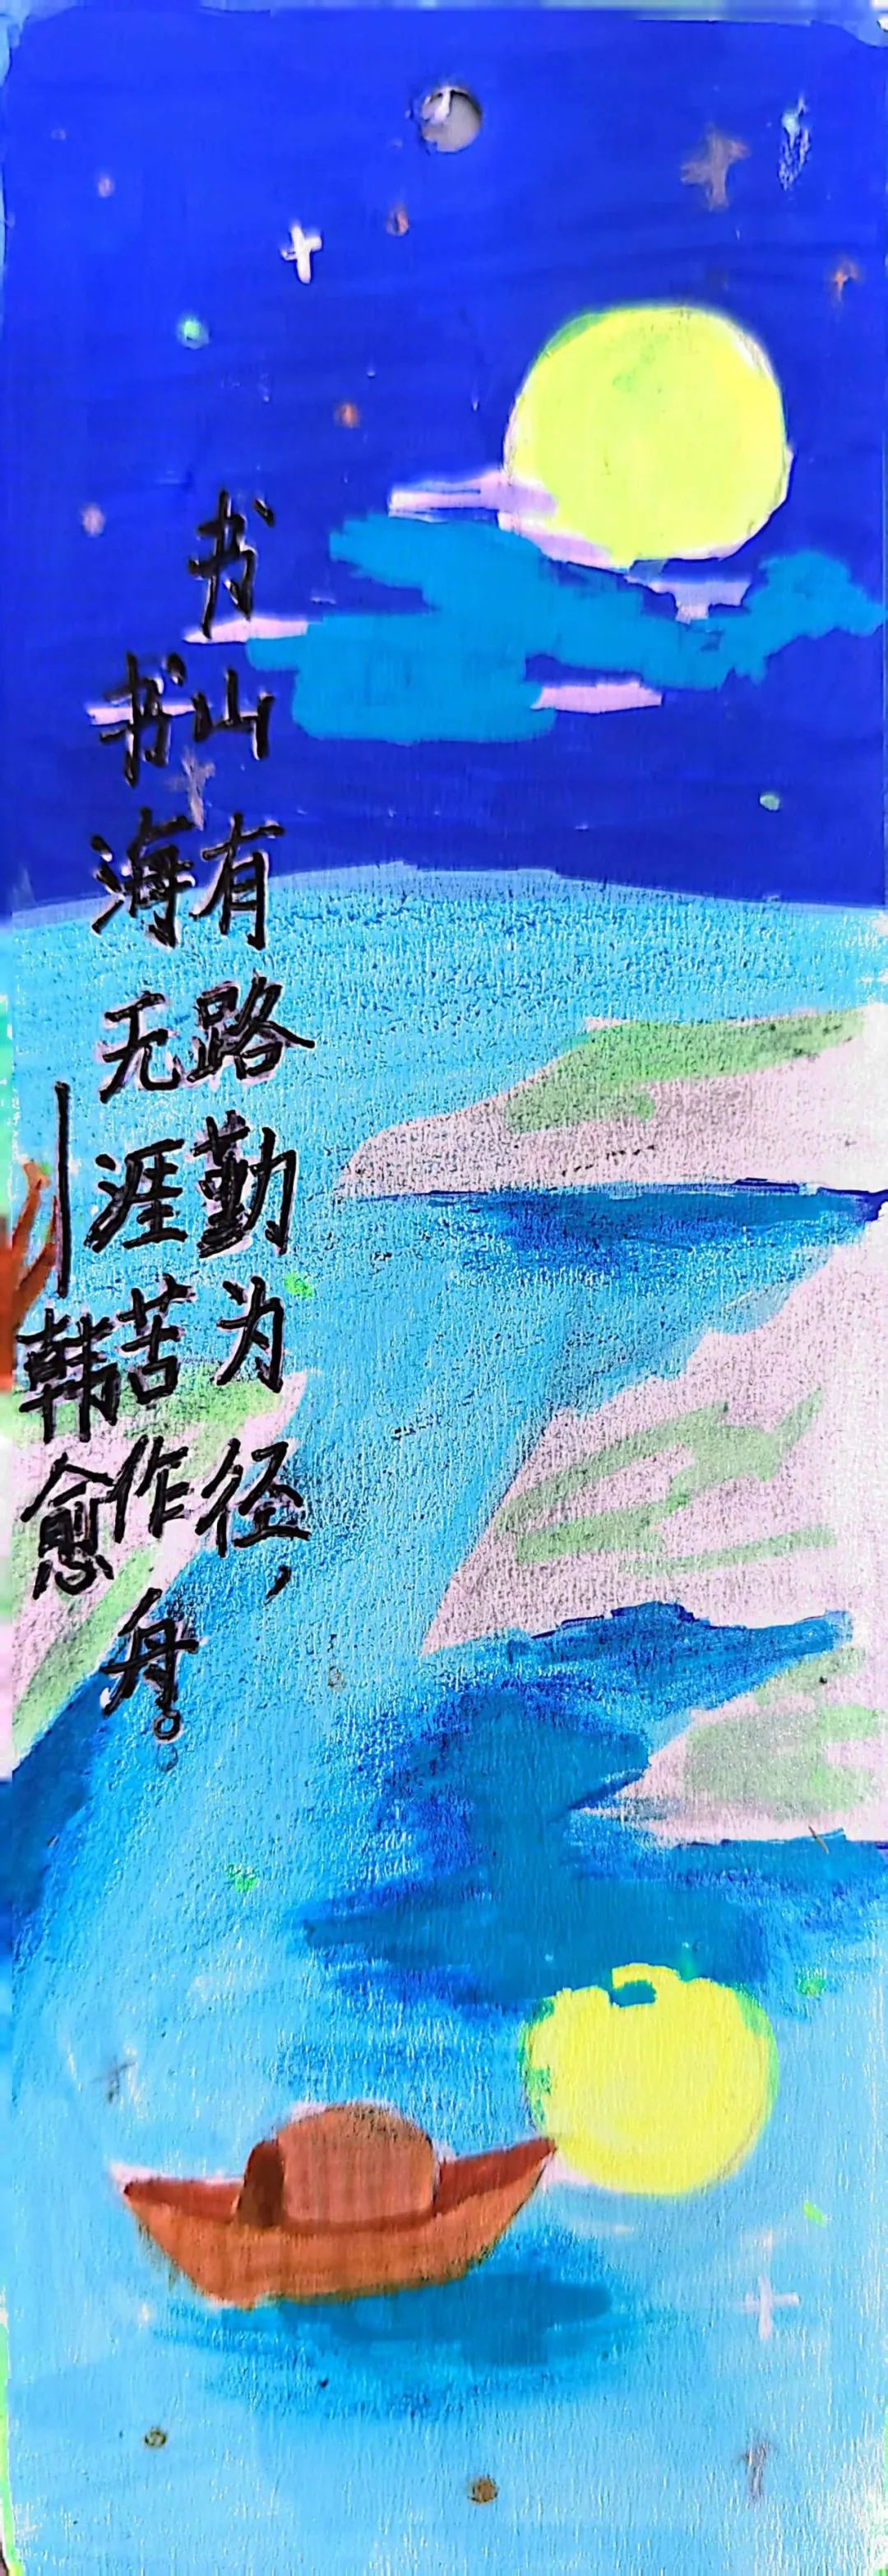 书山有路勤为径，
书海无涯苦作舟。
—韩愈